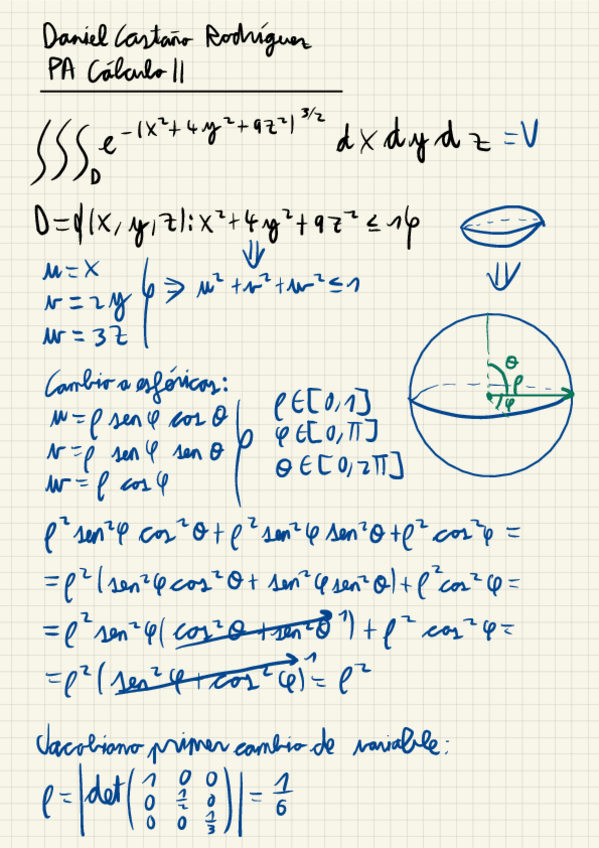 Daniel Castaño Rodríguez
PA Cálculo II
∭_D e^{-(x²+4y²+9z²)^{3/2}} dx dy dz = V
D={(x,y,z): x²+4y²+9z² ≤ 1}
⇓
u=x
v=2y
w=3z
} ⇒ u²+v²+w² ≤ 1
⇓
θ
ρ
φ
Cambio a esféricas:
u=ρ sen φ cos θ
v=ρ sen φ sen θ
w=ρ cos φ
}
ρ∈[0,1]
φ∈[0,π]
θ∈[0,2π]
ρ² sen²φ cos²θ + ρ² sen²φ sen²θ + ρ² cos²φ =
=ρ²(sen²φ cos²θ + sen²φ sen²θ) + ρ² cos²φ =
=ρ² sen²φ(cos²θ + sen²θ 1) + ρ² cos²φ =
=ρ²(sen²φ + cos²φ) 1 = ρ²
Jacobiano primer cambio de variable:
ρ = |det(1 0 0
0 1/2 0
0 0 1/3)| = 1/6